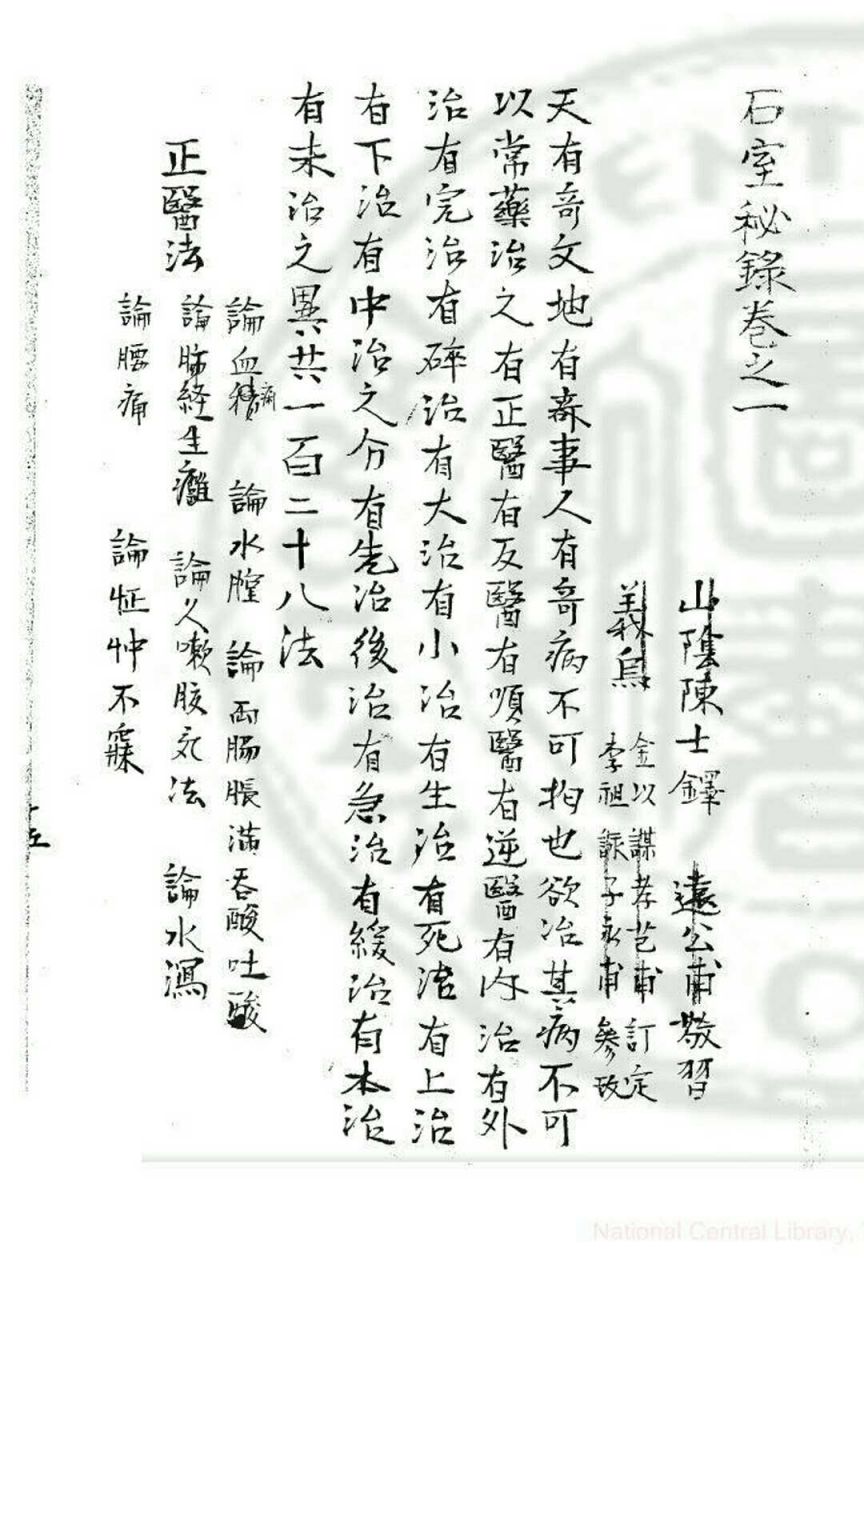 石室秘錄卷之一
山陰陳士鐸　遠公甫敬習
義烏
金以謀孝芑甫　訂定
李祖詠子永甫　參攷
天有奇文地有奇事人有奇病不可拘也欲治其病不可
以常藥治之有正醫有反醫有順醫有逆醫有內治有外
治有完治有碎治有大治有小治有生治有死治有上治
有下治有中治之分有先治後治有急治有緩治有本治
有未治之異共一百二十八法
正醫法
論血積痛　論水膛　論両腸脹滿吞酸吐酸
論肺経生癰　論久嗽服氣法　論水瀉
論腰痛　論怔忡不寐
十五
National Central Library,